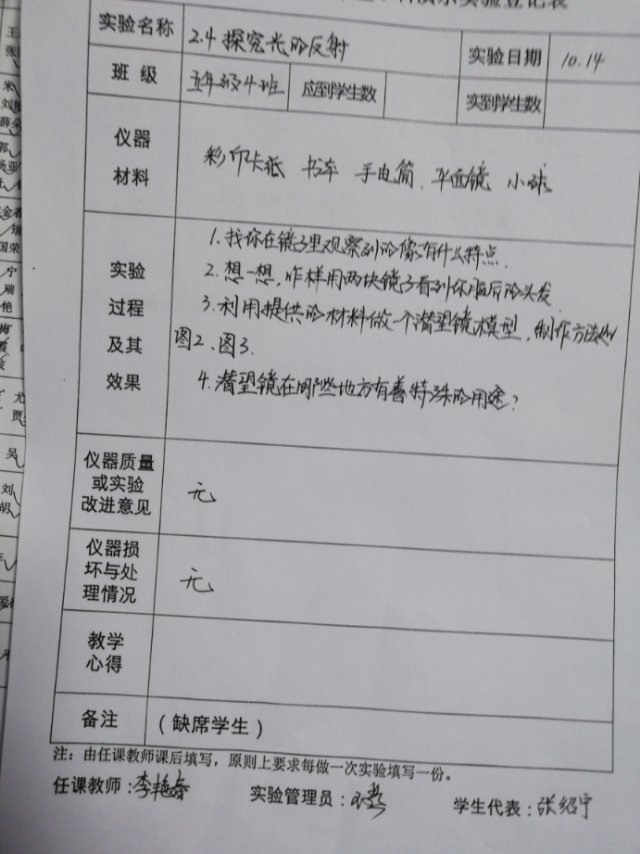 实验登记表
实验名称 2.4 探究光的反射 实验日期 10.14
班 级 五年级4班 应到学生数 实到学生数
仪器
材料
彩印卡纸 书本 手电筒 平面镜 小球
实验
过程
及其
效果
1. 找你在镜子里观察到的像有什么特点.
2. 想一想,咋样用两块镜子看到你脑后的头发
3. 利用提供的材料做一个潜望镜模型,制作方法如
图2、图3.
4. 潜望镜在哪些地方有着特殊的用途?
仪器质量
或实验
改进意见
无
仪器损
坏与处
理情况
无
教学
心得
备注 (缺席学生)
注:由任课教师课后填写,原则上要求每做一次实验填写一份。
任课教师:李艳春 实验管理员: 学生代表:张绍宁